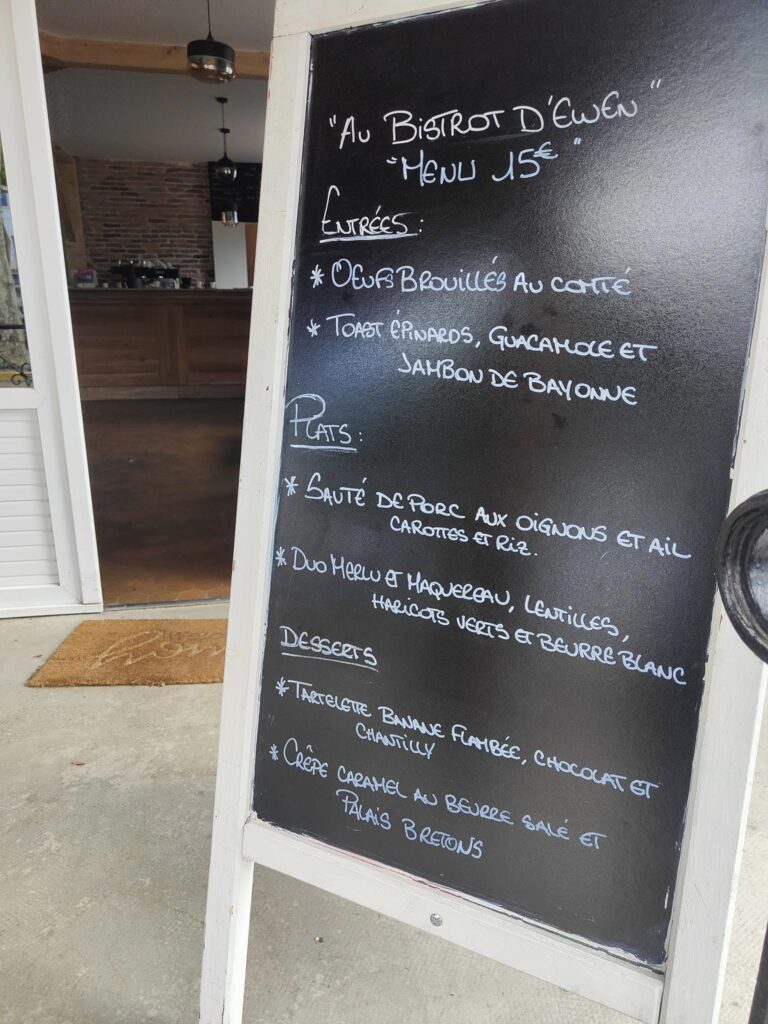 "AU BISTROT D'EWEN"
"MENU 15€"
ENTRÉES :
* OEUFS BROUILLÉS AU COMTÉ
* TOAST ÉPINARDS, GUACAMOLE ET
JAMBON DE BAYONNE
PLATS :
* SAUTÉ DE PORC AUX OIGNONS ET AIL
CAROTTES ET RIZ.
* DUO MERLU ET MAQUEREAU, LENTILLES,
HARICOTS VERTS ET BEURRE BLANC
DESSERTS
* TARTELETTE BANANE FLAMBÉE, CHOCOLAT ET
CHANTILLY
* CRÊPE CARAMEL AU BEURRE SALÉ ET
PALAIS BRETONS
home